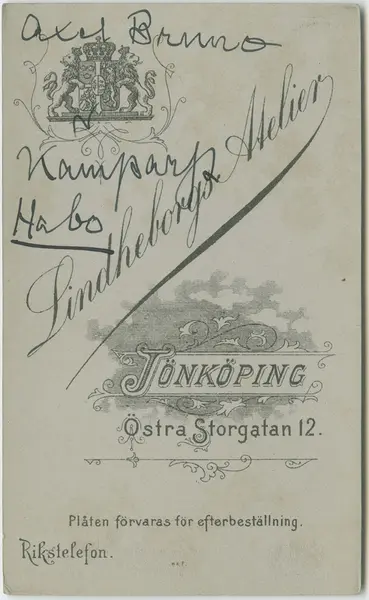 Axel Bruno
Kamparp
Habo
Lindheborgs Atelier
JÖNKÖPING
Östra Storgatan 12.
Plåten förvaras för efterbeställning.
Rikstelefon.